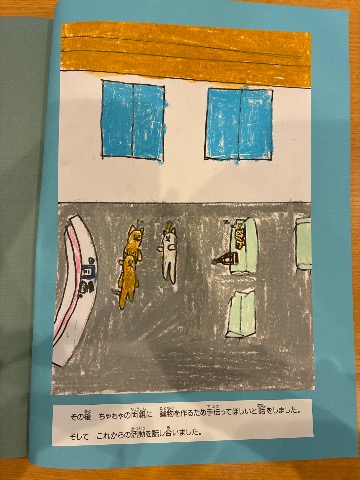 その後　ちゃちゃの両親に　建物を作るため手伝ってほしいと話をしました。
そして　これからの活動を話し合いました。